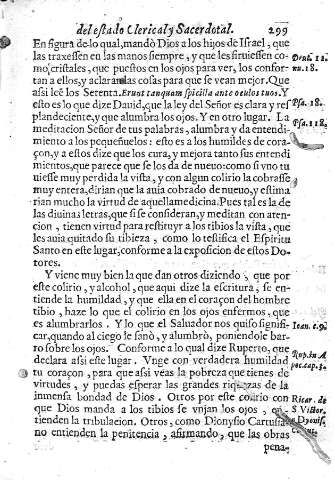 del estado Clerical, y Sacerdotal. 299
En figura de lo qual, mandò Dios a los hijos de Israel, que
las traxessen en las manos siempre, y que les siruiessen co-
mo cristales, que puestos en los ojos para ver, los confor-
tan a ellos, y aclaran las cosas para que se vean mejor. Que
assi leè los Setenta. Erunt tanquam spicilla ante oculos tuos. Y
esto es lo que dize Dauid, que la ley del Señor es clara y res
plandeciente, y que alumbra los ojos. Y en otro lugar. La
meditacion Señor de tus palabras, alumbra y da entendi-
miento a los pequeñuelos: esto es a los humildes de cora-
çon, y a estos dize que los cura, y mejora tanto sus entendi
mientos, que parece que se los da de nueuo: como si vno tu
uiesse muy perdida la vista, y con algun colirio la cobrasse
muy entera, dirian que la auia cobrado de nueuo, y estima
rian mucho la virtud de aquella medicina. Pues tal es la de
las diuinas letras, que si se consideran, y meditan con aten-
cion, tienen virtud para restituyr a los tibios la vista, que
les auia quitado su tibieza, como lo testifica el Espiritu
Santo en este lugar, conforme a la exposicion de estos Do-
tores.
Y viene muy bien la que dan otros diziendo, que por
este colirio, y alcohol, que aqui dize la escritura, se en-
tiende la humildad, y que ella en el coraçon del hombre
tibio, haze lo que el colirio en los ojos enfermos, que
es alumbrarlos. Y lo que el Saluador nos quiso signifi-
car, quando al ciego le sanò, y alumbrò, poniendole bar-
ro sobre los ojos. Conforme a lo qual dize Ruperto, que
declara assi este lugar. Vnge con verdadera humildad
tu coraçon, para que assi veas la pobreza que tienes de
virtudes, y puedas esperar las grandes riquezas de la
inmensa bondad de Dios. Otros por este colirio con
que Dios manda a los tibios se vnjan los ojos, en-
tienden la tribulacion. Otros, como Dionysio Cartusia
no entienden la penitencia, afirmando, que las obras
pena-
Deut. 11.
nu. 18.
Psa. 18.
Psa. 118.
Ioan. c. 9.
Rup. in A
poc. cap. 3.
Ricar. de
S Victor.